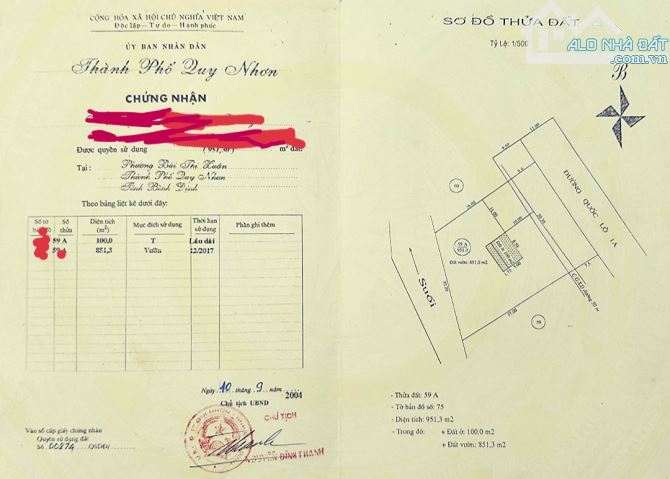 CỘNG HÒA XÃ HỘI CHỦ NGHĨA VIỆT NAM
Độc lập - Tự do - Hạnh phúc
ỦY BAN NHÂN DÂN
Thành Phố Quy Nhơn
CHỨNG NHẬN
Được quyền sử dụng (951,30) m² đất
Tại : Phường Bùi Thị Xuân
Thành Phố Quy Nhơn
Tỉnh Bình Định
Theo bảng liệt kê dưới đây:
Số tờ Số thửa Diện tích (m²) Mục đích sử dụng Thời hạn sử dụng Phần ghi thêm
59 A 100,0 T Lâu dài
851,3 Vườn 12/2017
Ngày 10 tháng 9 năm 2004
Chủ tịch UBND
CHỦ TỊCH
NGUYỄN ĐÌNH THANH
Vào sổ cấp giấy chứng nhận
Quyền sử dụng đất
Số 00874 /QSDĐ/
SƠ ĐỒ THỬA ĐẤT
Tỷ Lệ: 1/500
ALO NHÀ ĐẤT
.com.vn
B
ĐƯỜNG QUỐC LỘ 1A
59 A
951,3
Đất vườn: 851,0 m2
Suối
- Thửa đất: 59 A
- Tờ bản đồ số: 75
- Diện tích: 951,3 m2
- Trong đó: + Đất ở: 100.0 m2
+ Đất vườn: 851,3 m2